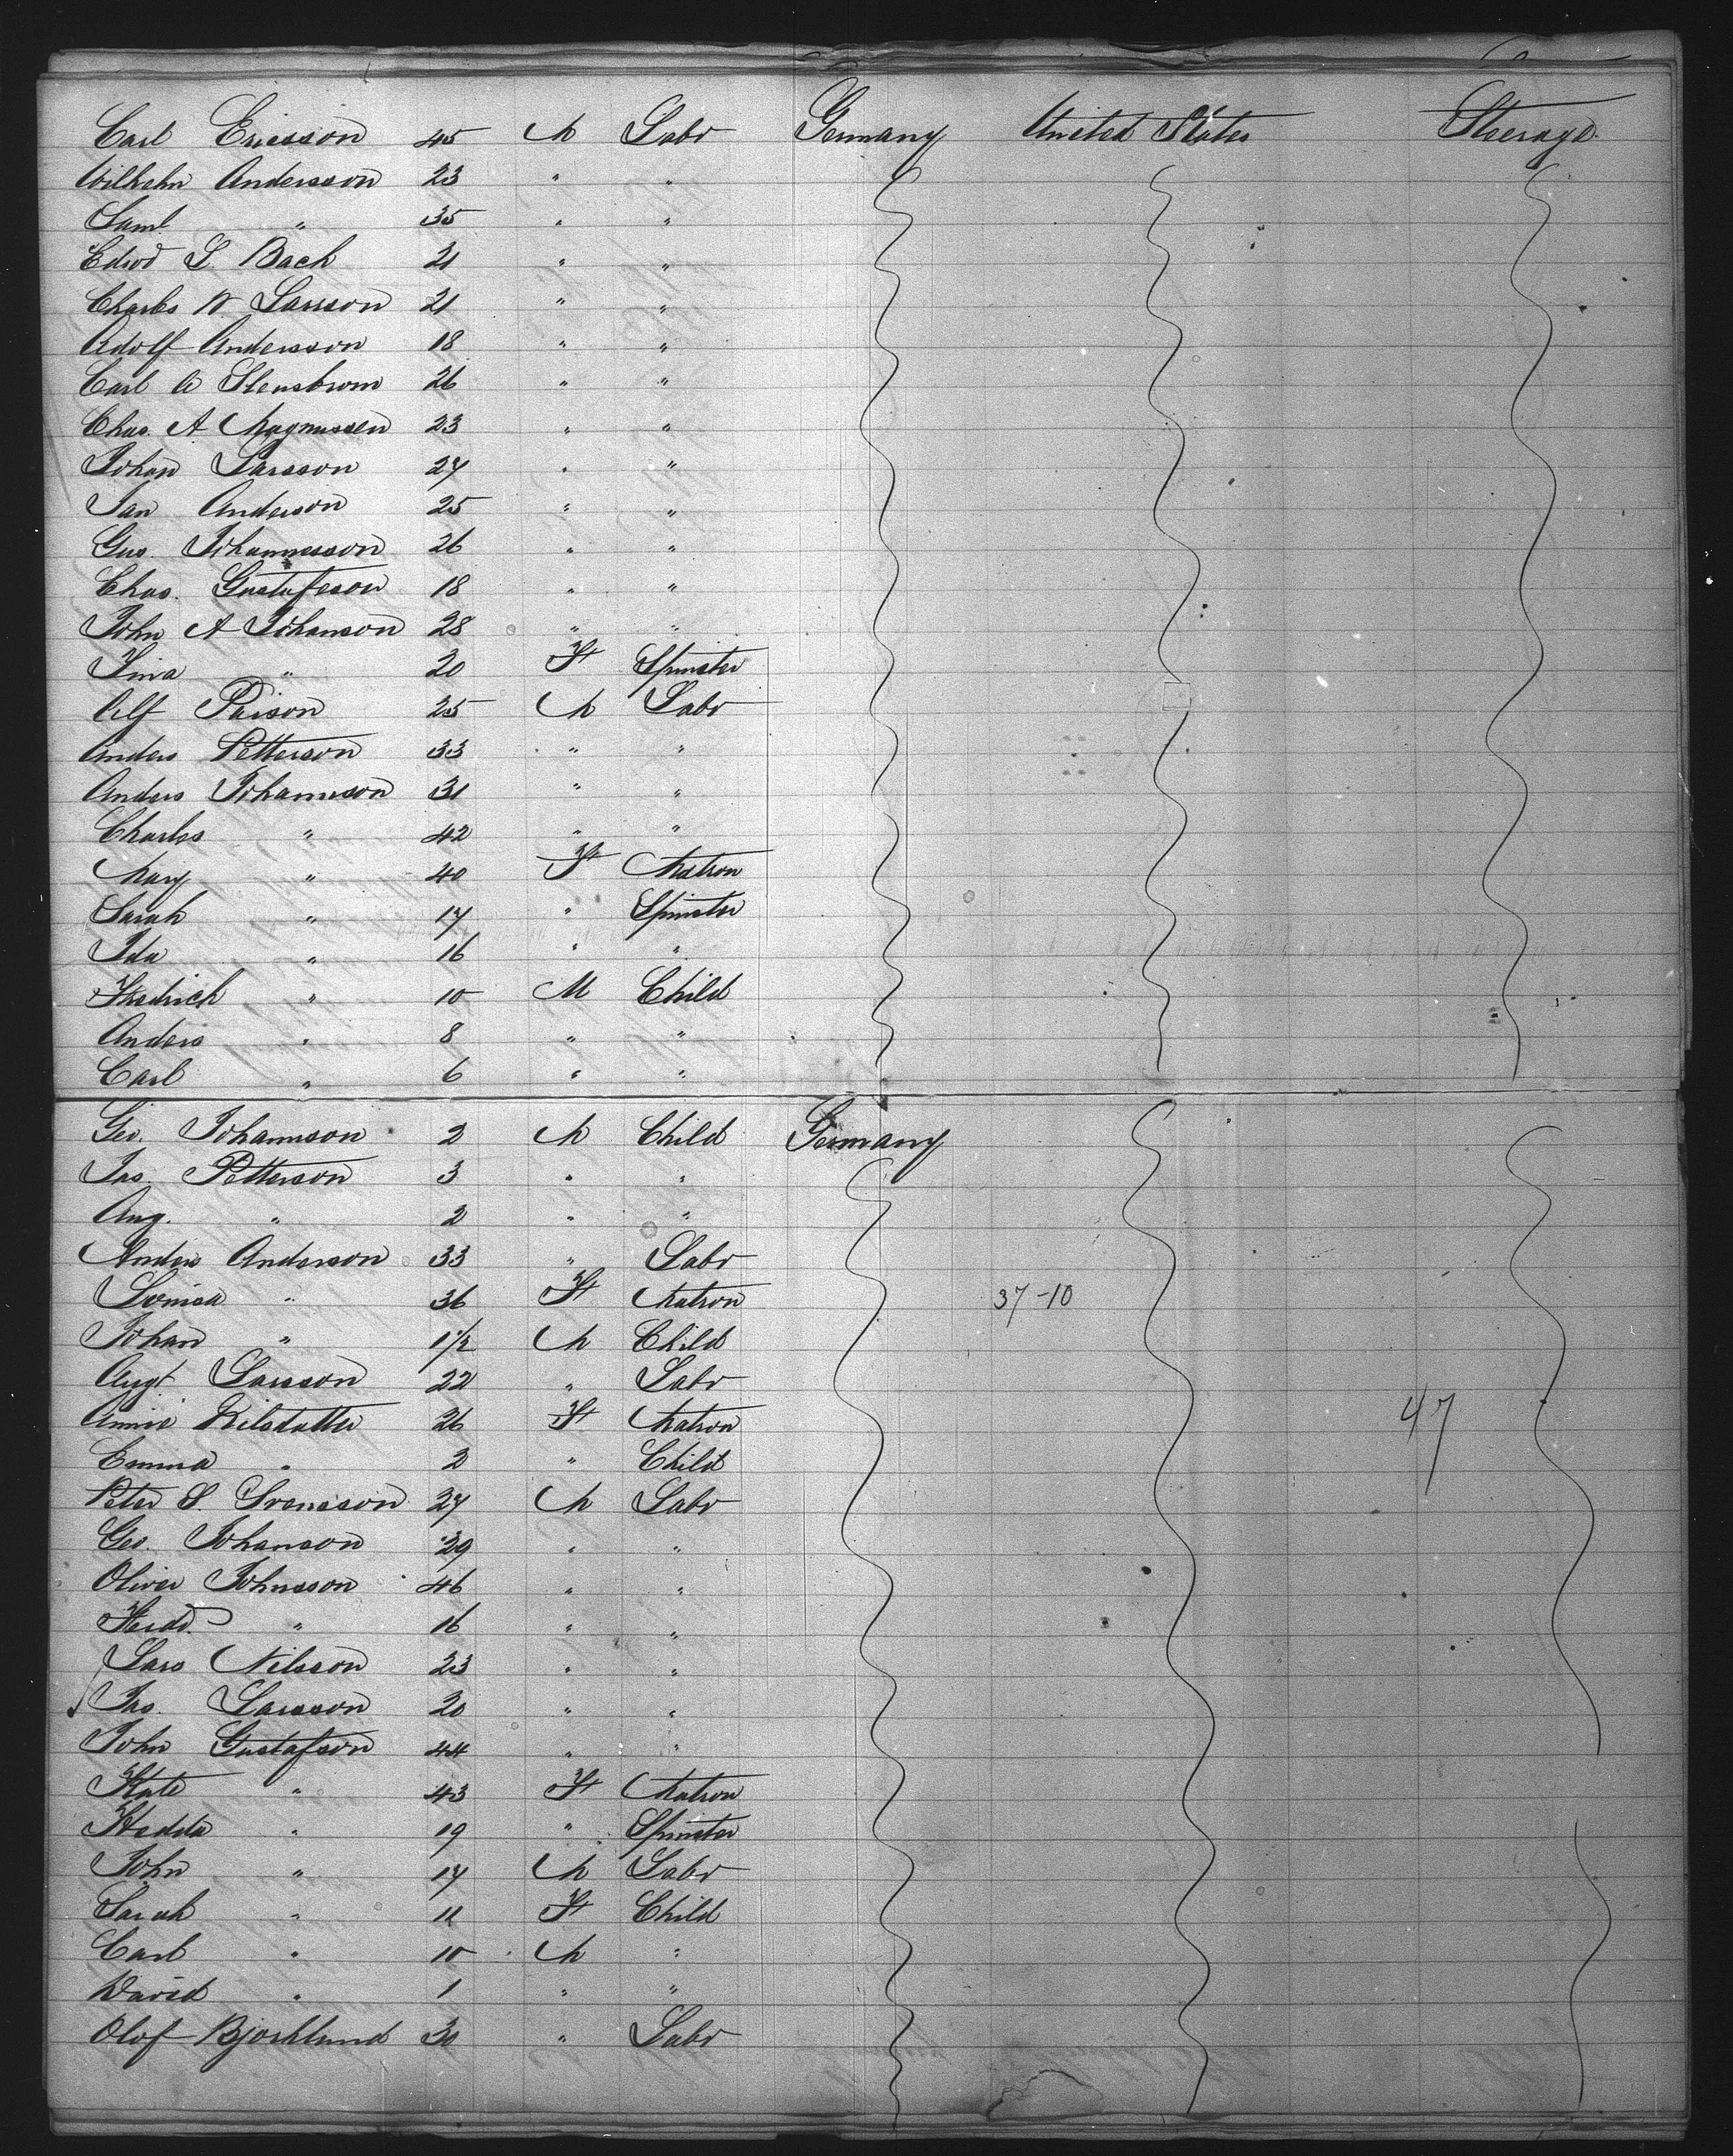 Carl Ericsson 45 M Labr Germany United States Steerage.
Wilhelm Andersson 23 " "
Saml " 35 " "
Edwd L. Back 21 " "
Charles W Larsson 21 " "
Adolf Andersson 18 " "
Carl A Stenstrom 26 " "
Chas. A Magnussen 23 " "
Johan Larsson 27 " "
Jan Anderson 25 " "
Gus. Johannesson 26 " "
Chas. Gustafson 18 " "
John A Johanson 28 " "
" 20 F Spinster
Alf 25 M Labr
Anders Petterson 33 " "
Anders Johannson 31 " "
Charles " 42 " "
Mary " 40 F Matron
Sarah " 17 " Spinster
Ida " 16 " "
Fredrick " 10 M Child
Anders " 8 " "
Carl " 6 " "
Geo. Johannson 2 M Child Germany
Jas. Petterson 3 " "
Aug. " 2 " "
Anders Anderson 33 " Labr
Louisa " 36 F Matron 37-10
Johan " 1 1/2 M Child
Augt Larsson 22 " Labr
Annie 26 F Matron 47
Emma " 2 " Child
Peter S. Svensson 27 M Labr
Geo. Johanson 29 " "
Oliver Johnsson 46 " "
Ferdd. " 16 " "
Lars Nilsson 23 " "
Jas. Larsson 20 " "
John Gustafson 44 " "
Kate " 43 F Matron
Hedda " 19 " Spinster
John " 17 M Labr
Sarah " 11 F Child
Carl " 10 M "
David " 1 " "
Olof Bjorklund 30 " Labr